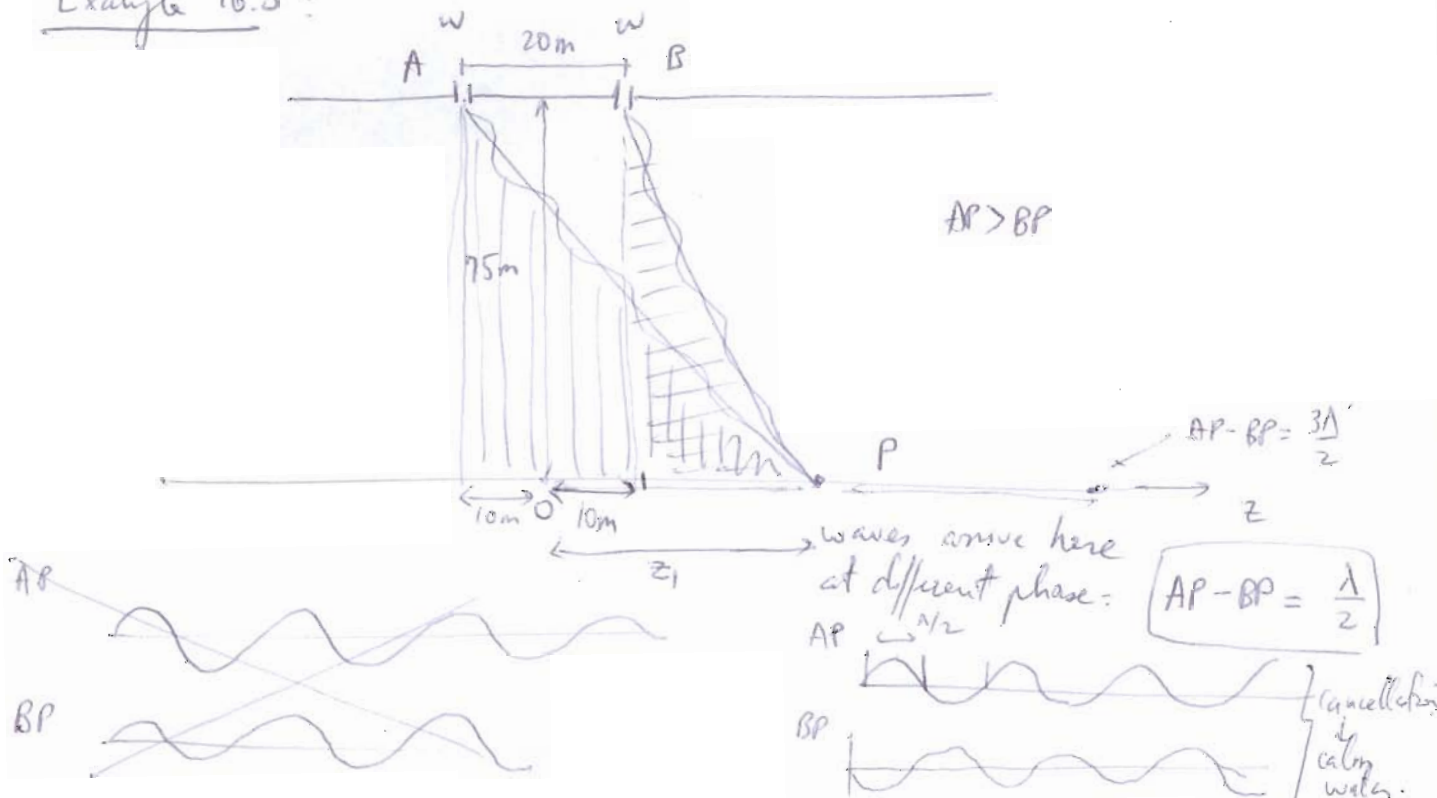 Example 16.5:
w
w
20m
A
B
AP > BP
75m
P
AP-BP = 3λ/2
10m
O
10m
z
z₁
waves arrive here
at different phase:
AP - BP = λ/2
AP
BP
AP
λ/2
BP
cancellation
↓
calm
water.